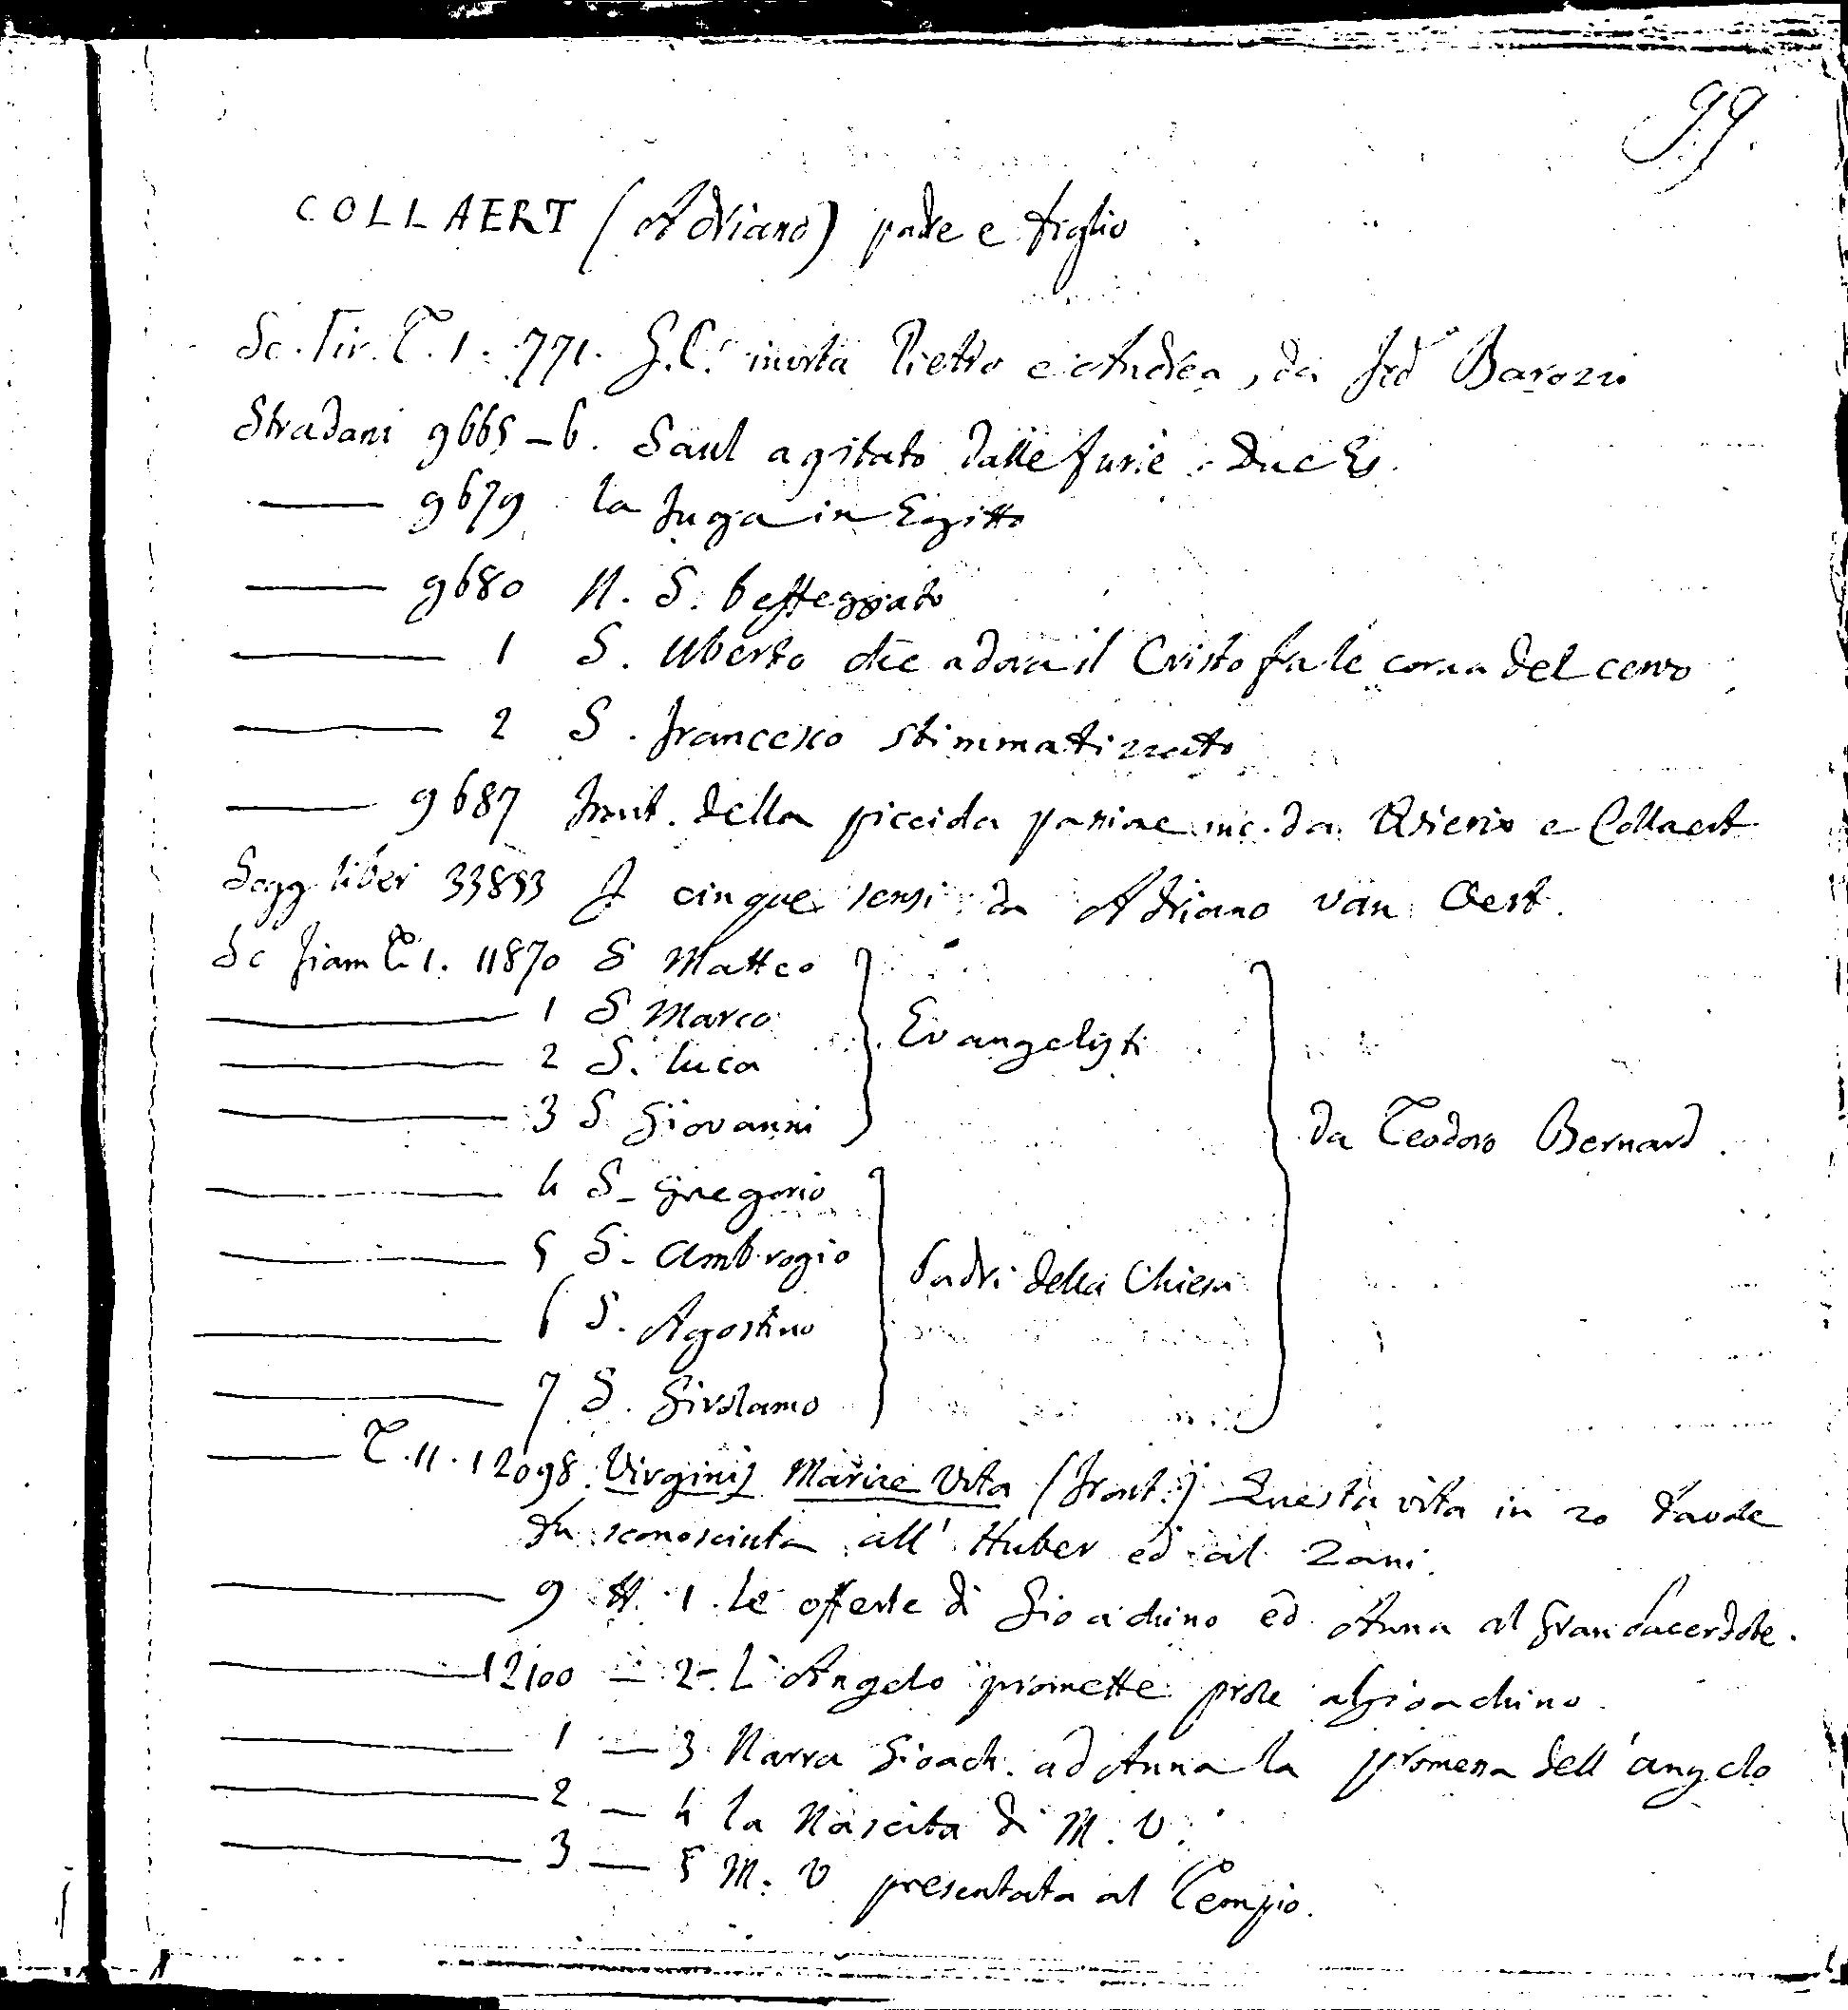 99.
COLLAERT (Adriano) padre e figlio
Sc. Tir. T. 1. 771. G. C. invita Pietro e Andrea, da Fed° Barozzi
Stradani 9665-6. Saul agitato dalle furie. Due Es.
9679 la Fuga in Egitto
9680 N. S. beffeggiato
1 S. Uberto che adora il Cristo fra le corna del cervo
2 S. Francesco stimmatizzato
9687 Front. della piccida da e Collaert
Sogg liberi 33853 I cinque sensi da Adriano van Oest.
Sc Fiam T. 1. 11870 S Matteo
1 S Marco
2 S. Luca
3 S Giovanni
Evangelisti
4 S. Gregorio
5 S. Ambrogio
6 S. Agostino
7 S. Girolamo
Padri della Chiesa
da Teodoro Bernard.
T. 11. 12098. Virginis Mariae Vita (Front.) Questa vita in 20 tavole
fu sconosciuta all' Huber ed al Zani.
9 N. 1. Le offerte di Gioachino ed Anna al Gran Sacerdote.
12100 — 2. L'Angelo promette prole a Gioachino.
1 — 3 Narra Gioach. ad Anna la promessa dell'angelo
2 — 4 la Nascita di M. V.
3 — 5 M. V presentata al Tempio.